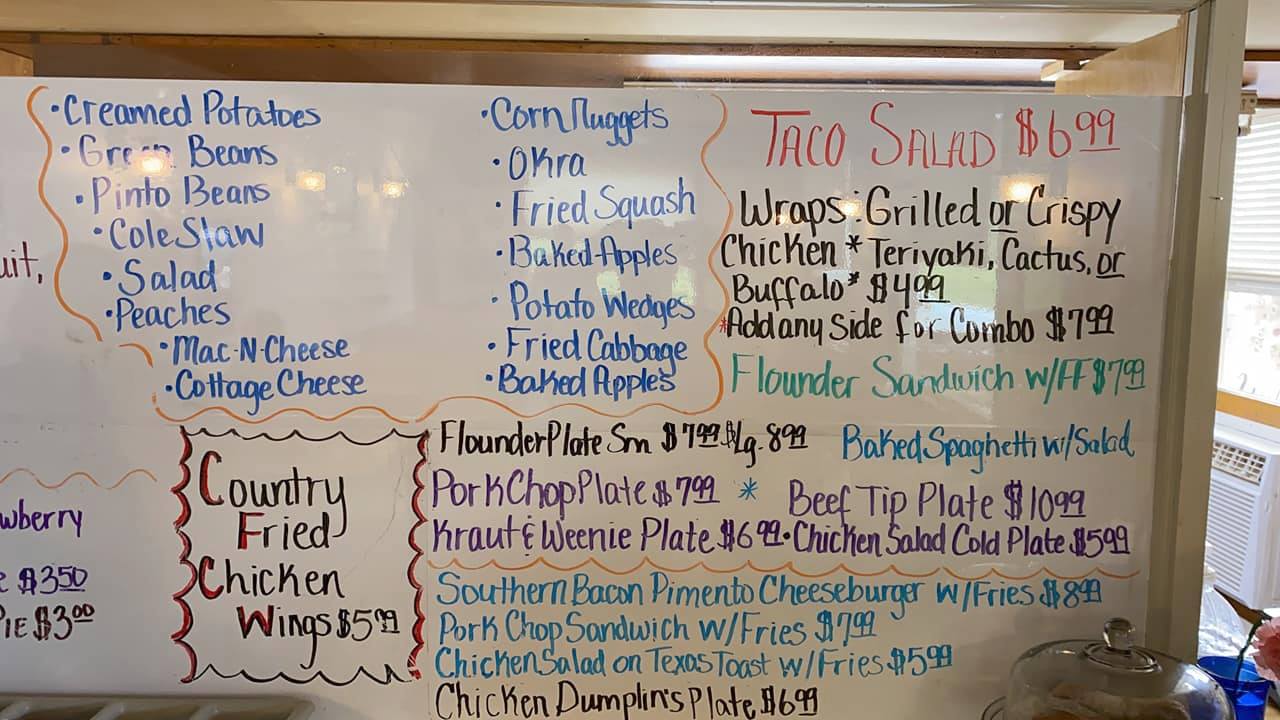 • Creamed Potatoes
• Green Beans
• Pinto Beans
• Cole Slaw
• Salad
• Peaches
• Mac-N-Cheese
• Cottage Cheese
• Corn Nuggets
• Okra
• Fried Squash
• Baked Apples
• Potato Wedges
• Fried Cabbage
• Baked Apples
TACO SALAD $6.99
Wraps: Grilled or Crispy
Chicken * Teriyaki, Cactus, or
Buffalo* $4.99
*Add any Side for Combo $7.99
Flounder Sandwich w/FF $7.99
Flounder Plate Sm $7.99 $Lg. 8.99
Baked Spaghetti w/Salad
Pork Chop Plate $7.99 * Beef Tip Plate $10.99
Kraut & Weenie Plate $6.99 • Chicken Salad Cold Plate $5.99
Country
Fried
Chicken
Wings $5.99
Southern Bacon Pimento Cheeseburger w/Fries $8.99
Pork Chop Sandwich w/Fries $7.99
Chicken Salad on Texas Toast w/Fries $5.99
Chicken Dumplin's Plate $6.99
uit,
wberry
e $3.50
PIE $3.00